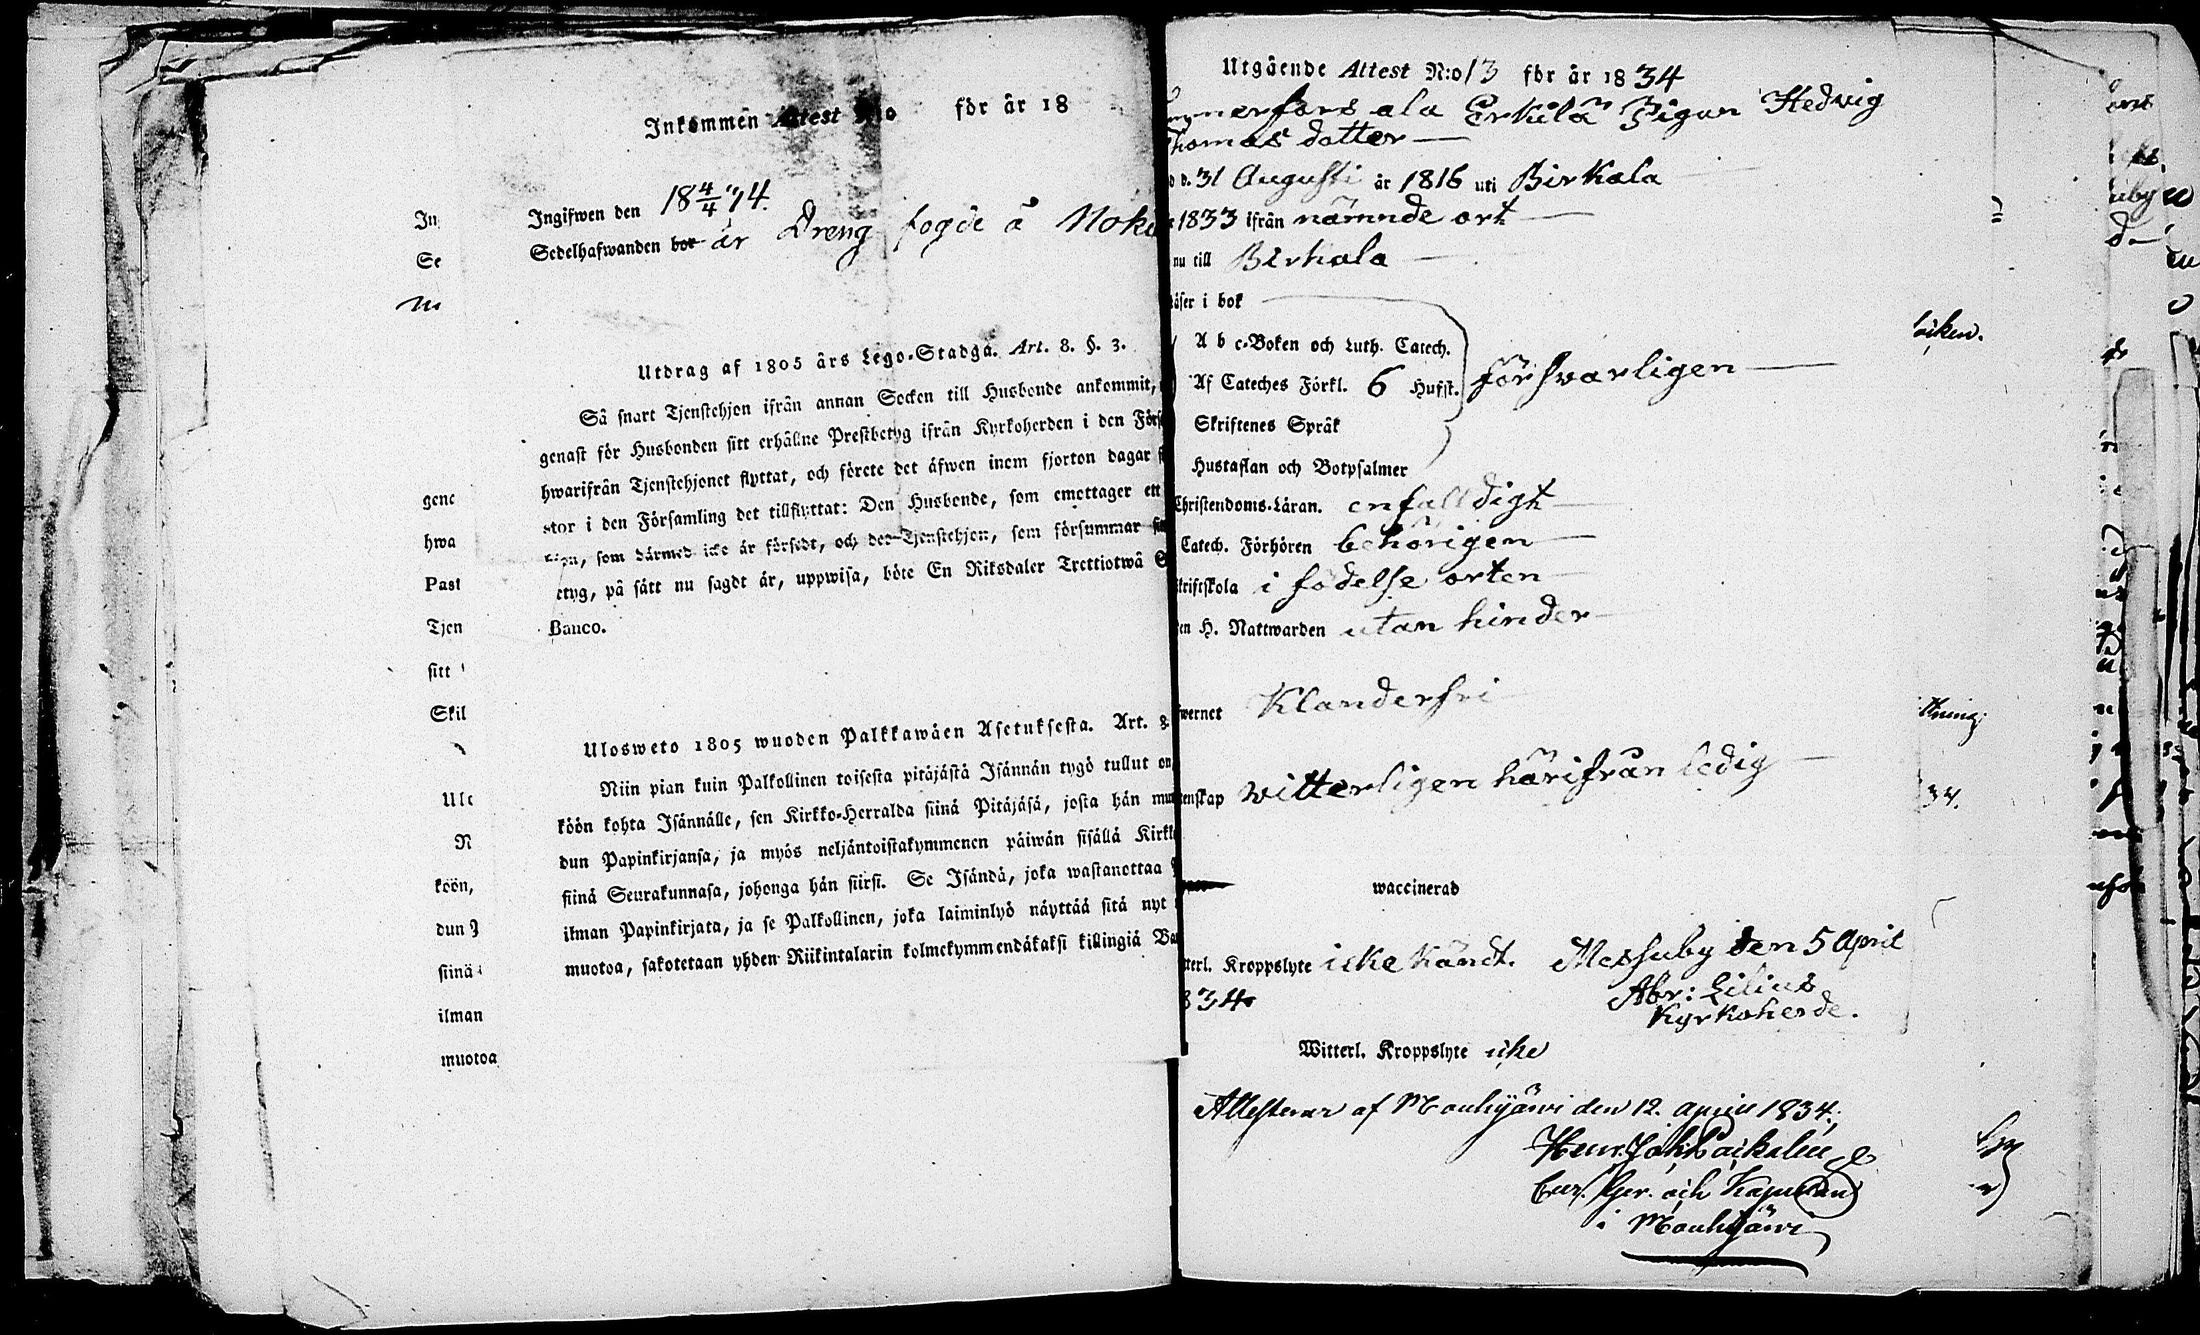 Inkommen Attest N:o för år 18
Ingifwen den 18 4/4 14.
Sedelhafwanden bor är Dreng fogde å Noki
Utdrag af 1805 års Lego-Stadga. Art. 8. §. 3.
Så snart Tjenstehjon ifrån annan Socken till Husbonde ankommit,
genast för Husbonden sitt erhållne Prestbetyg ifrån Kyrkoherden i den Förs
hwarifrån Tjenstehjonet flyttat, och förete det äfwen inom fjorton dagar
stor i den Församling det tillflyttat: Den Husbonde, som emottager ett
som därmed icke är försedt, och det Tjenstehjon, som försummar
etyg, på sätt nu sagdt är, uppwisa, böte En Riksdaler Trettiotwå S
Banco.
Ulosweto 1805 wuoden Palkkawäen Asetuksesta. Art. 8.
Niin pian kuin Palkollinen toisesta pitäjästä Isännän tygö tullut on
köön kohta Isännälle, sen Kirkko-Herralda siinä Pitäjäsä, josta hän mu
dun Papinkirjansa, ja myös neljäntoistakymmenen päiwän sisällä Kirkk
siinä Seurakunnasa, johonga hän siirsi. Se Isändä, joka wastanottaa
ilman Papinkirjata, ja se Palkollinen, joka laiminlyö näyttää sitä nyt
muotoa, sakotetaan yhden Riikintalarin kolmekymmendäkaksi killingiä Ba
In
Se
gene
hwa
Past
Tjen
sitt
Skil
Ulo
N
köön,
dun P
siinä
ilman
muotoa
Utgående Attest N:o 13 för år 1834
merfors ala Erkilä Pigan Hedwig
Thomas dotter
d. 31 Augusti år 1816 uti Birkala
1833 ifrån nämnde ort
nu till Birkala
läser i bok
A b c-Boken och Luth. Catech.
Af Cateches Förkl. 6 Hufst. försvarligen
Skriftenes Språk
Hustaflan och Botpsalmer
Christendoms-Läran. enfalldigt
Catech. Förhören behörigen
kriftskola i födelse orten
en H. Nattwarden utan hinder
wernet Klanderfri
enskap witterligen härifrån ledig
waccinerad
terl. Kroppslyte icke kändt. Messuby den 5 April
834.
Abr: Lilius
Kyrkoherde.
Witterl. Kroppslyte icke
Attesterar af Mouhijärwi den 12. April 1834.
Henr. Joh:
och Kapellan
i Mouhijärwi
34.